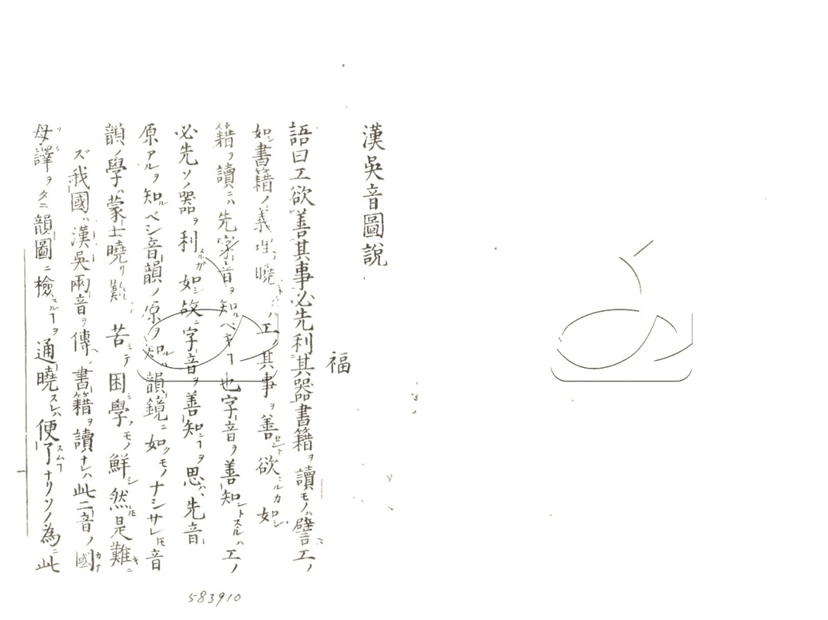 漢吳音圖說
福
語曰工欲善其事必先利其器書籍ヲ讀モノハ譬ニ工ノ
如シ書籍ノ義理ニ曉ハ工ノ其事ヲ善セント欲ルカ如シ
籍ヲ讀ニハ先字音ヲ知ルベキヿ也字音ヲ善知ントスルハ工ノ
必先ソノ器ヲ利スルガ如シ故ニ字音ヲ善知ニヿヲ思ハ先音
原アルヲ知ルベシ音韻ノ原ヲ知ルハ韻鏡ニ如クモノナシサレ𪜈音
韻ノ學ハ蒙士曉リ難シ苦ミテ困學フモノ鮮シ然𪜈是難キニ
ズ我國ハ漢吳兩音ヲ傳ヘ書籍ヲ讀ナレハ此二音ノ國
母譯ヲタニ韻圖ニ檢スルヿヲ通曉スレハ便了スムヿナリソノ為ニ此
583910